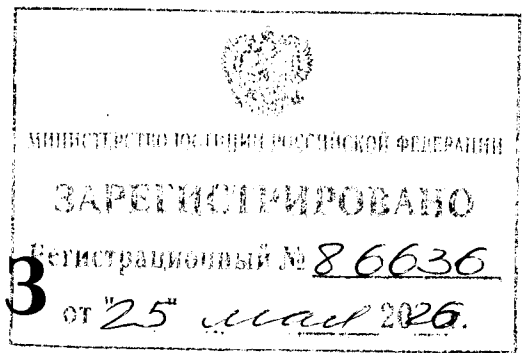 МИНИСТЕРСТВО ЮСТИЦИИ РОССИЙСКОЙ ФЕДЕРАЦИИ
ЗАРЕГИСТРИРОВАНО
Регистрационный № 86636
от "25" мая 2026.
З